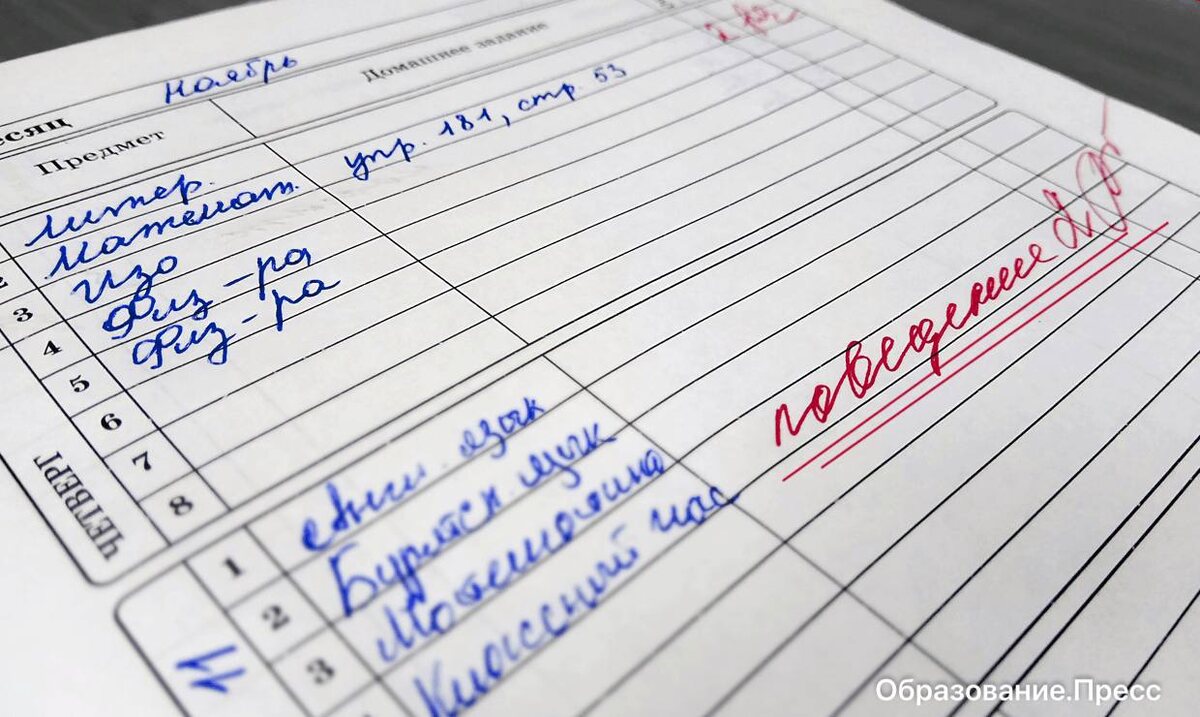 Ноябрь
есяц
Предмет Домашнее задание
Литер.
2 Математ. упр. 181, стр. 53
3 Изо
4 Физ-ра
5 Физ-ра
6
7
8
ЧЕТВЕРГ
поведение 2
1 Англ. язык
2 Бурятск. язык
3 Математика
Классный час
11
Образование.Пресс